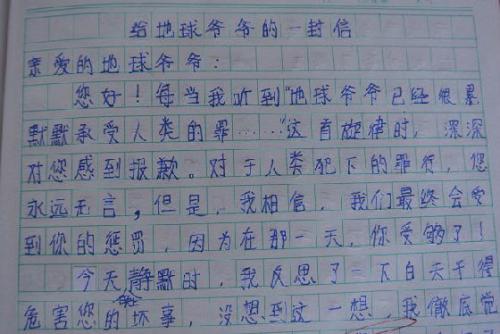 给地球爷爷的一封信
亲爱的地球爷爷：
您好！每当我听到“地球爷爷已经很累
默默承受人类的罪……”这首旋律时，深深
对您感到报歉。对于人类犯下的罪行，您
永远无言，但是，我相信，我们最终会受
到你的惩罚，因为在那一天，你受够了！
今天静默时，我反思了一下白天干得
危害您的坏事，没想到这一想，我彻底觉